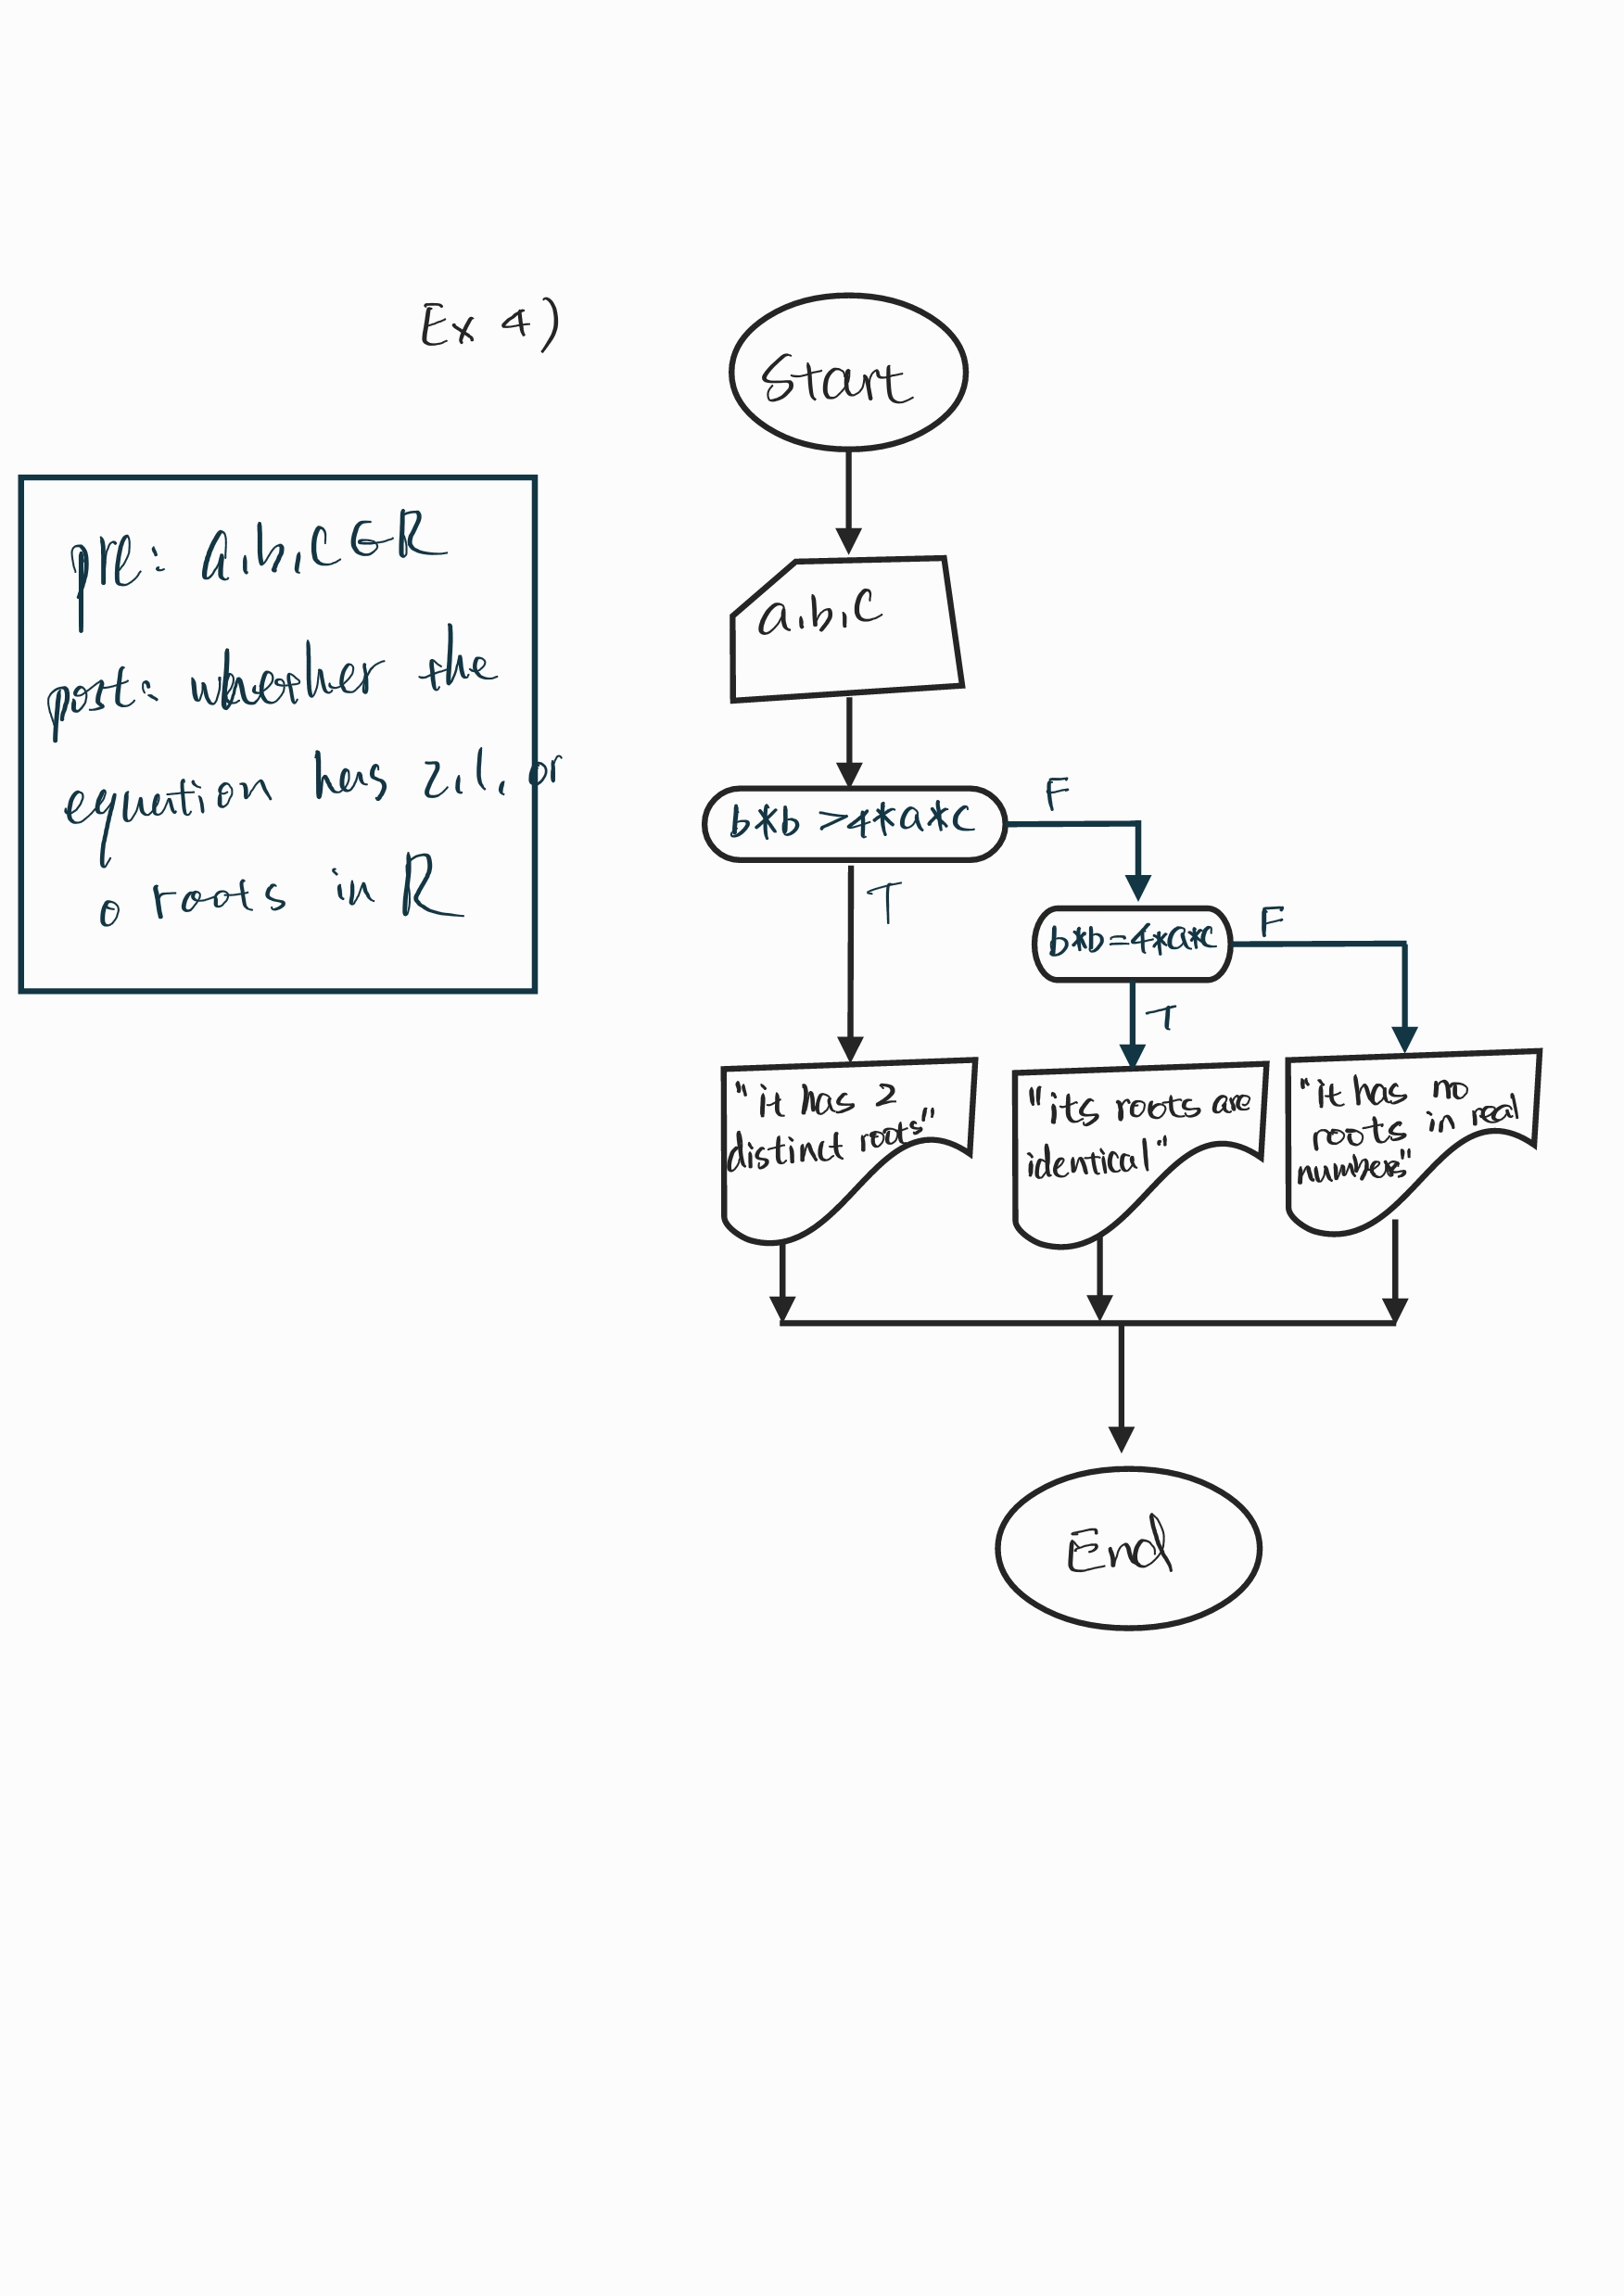 Ex 4)
Start
pre: a,b,c ∈ R
post: whether the
equation has 2,1, or
0 roots in R
a,b,c
b*b >4*a*c
F
T
b*b=4*a*c
F
T
"it has 2
distinct roots"
"its roots are
identical"
"it has no
roots in real
numbers"
End